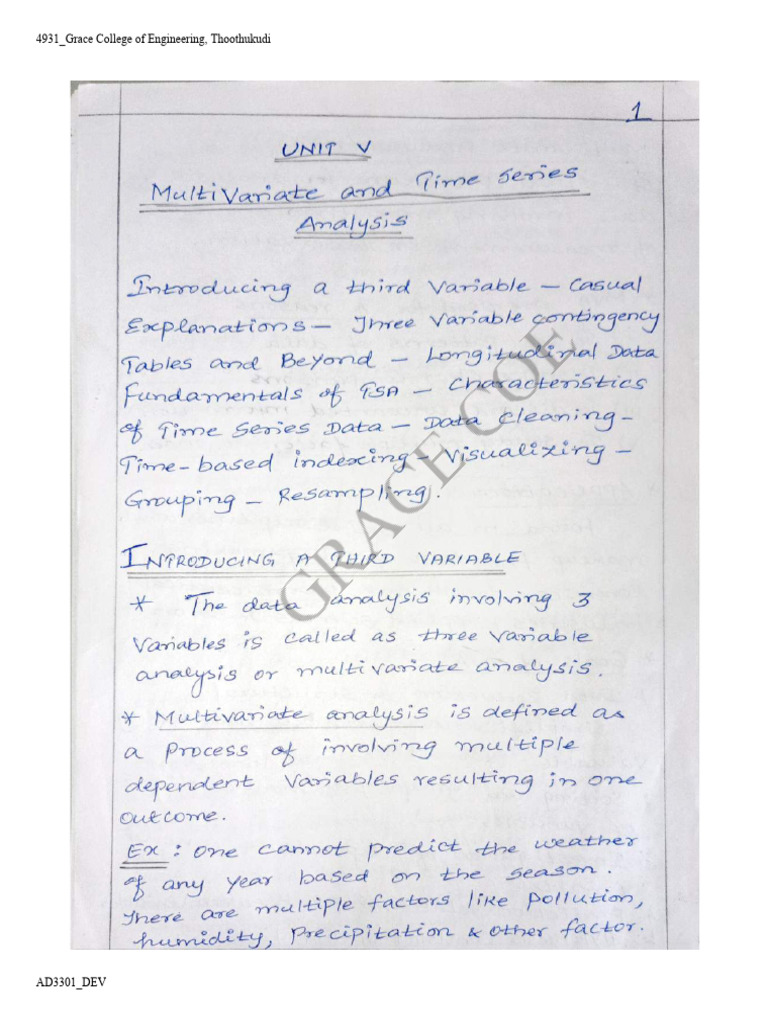 4931_Grace College of Engineering, Thoothukudi
1
UNIT V
Multivariate and Time Series
Analysis
Introducing a third variable – Casual
Explanations – Three variable contingency
Tables and Beyond – Longitudinal Data
Fundamentals of TSA – Characteristics
of Time Series Data – Data Cleaning –
Time-based indexing – Visualizing –
Grouping – Resampling.
INTRODUCING A THIRD VARIABLE
* The data analysis involving 3
variables is called as three variable
analysis or multivariate analysis.
* Multivariate analysis is defined as
a process of involving multiple
dependent variables resulting in one
outcome.
Ex: One cannot predict the weather
of any year based on the season.
There are multiple factors like pollution,
humidity, precipitation & other factor.
GRACE COE
AD3301_DEV